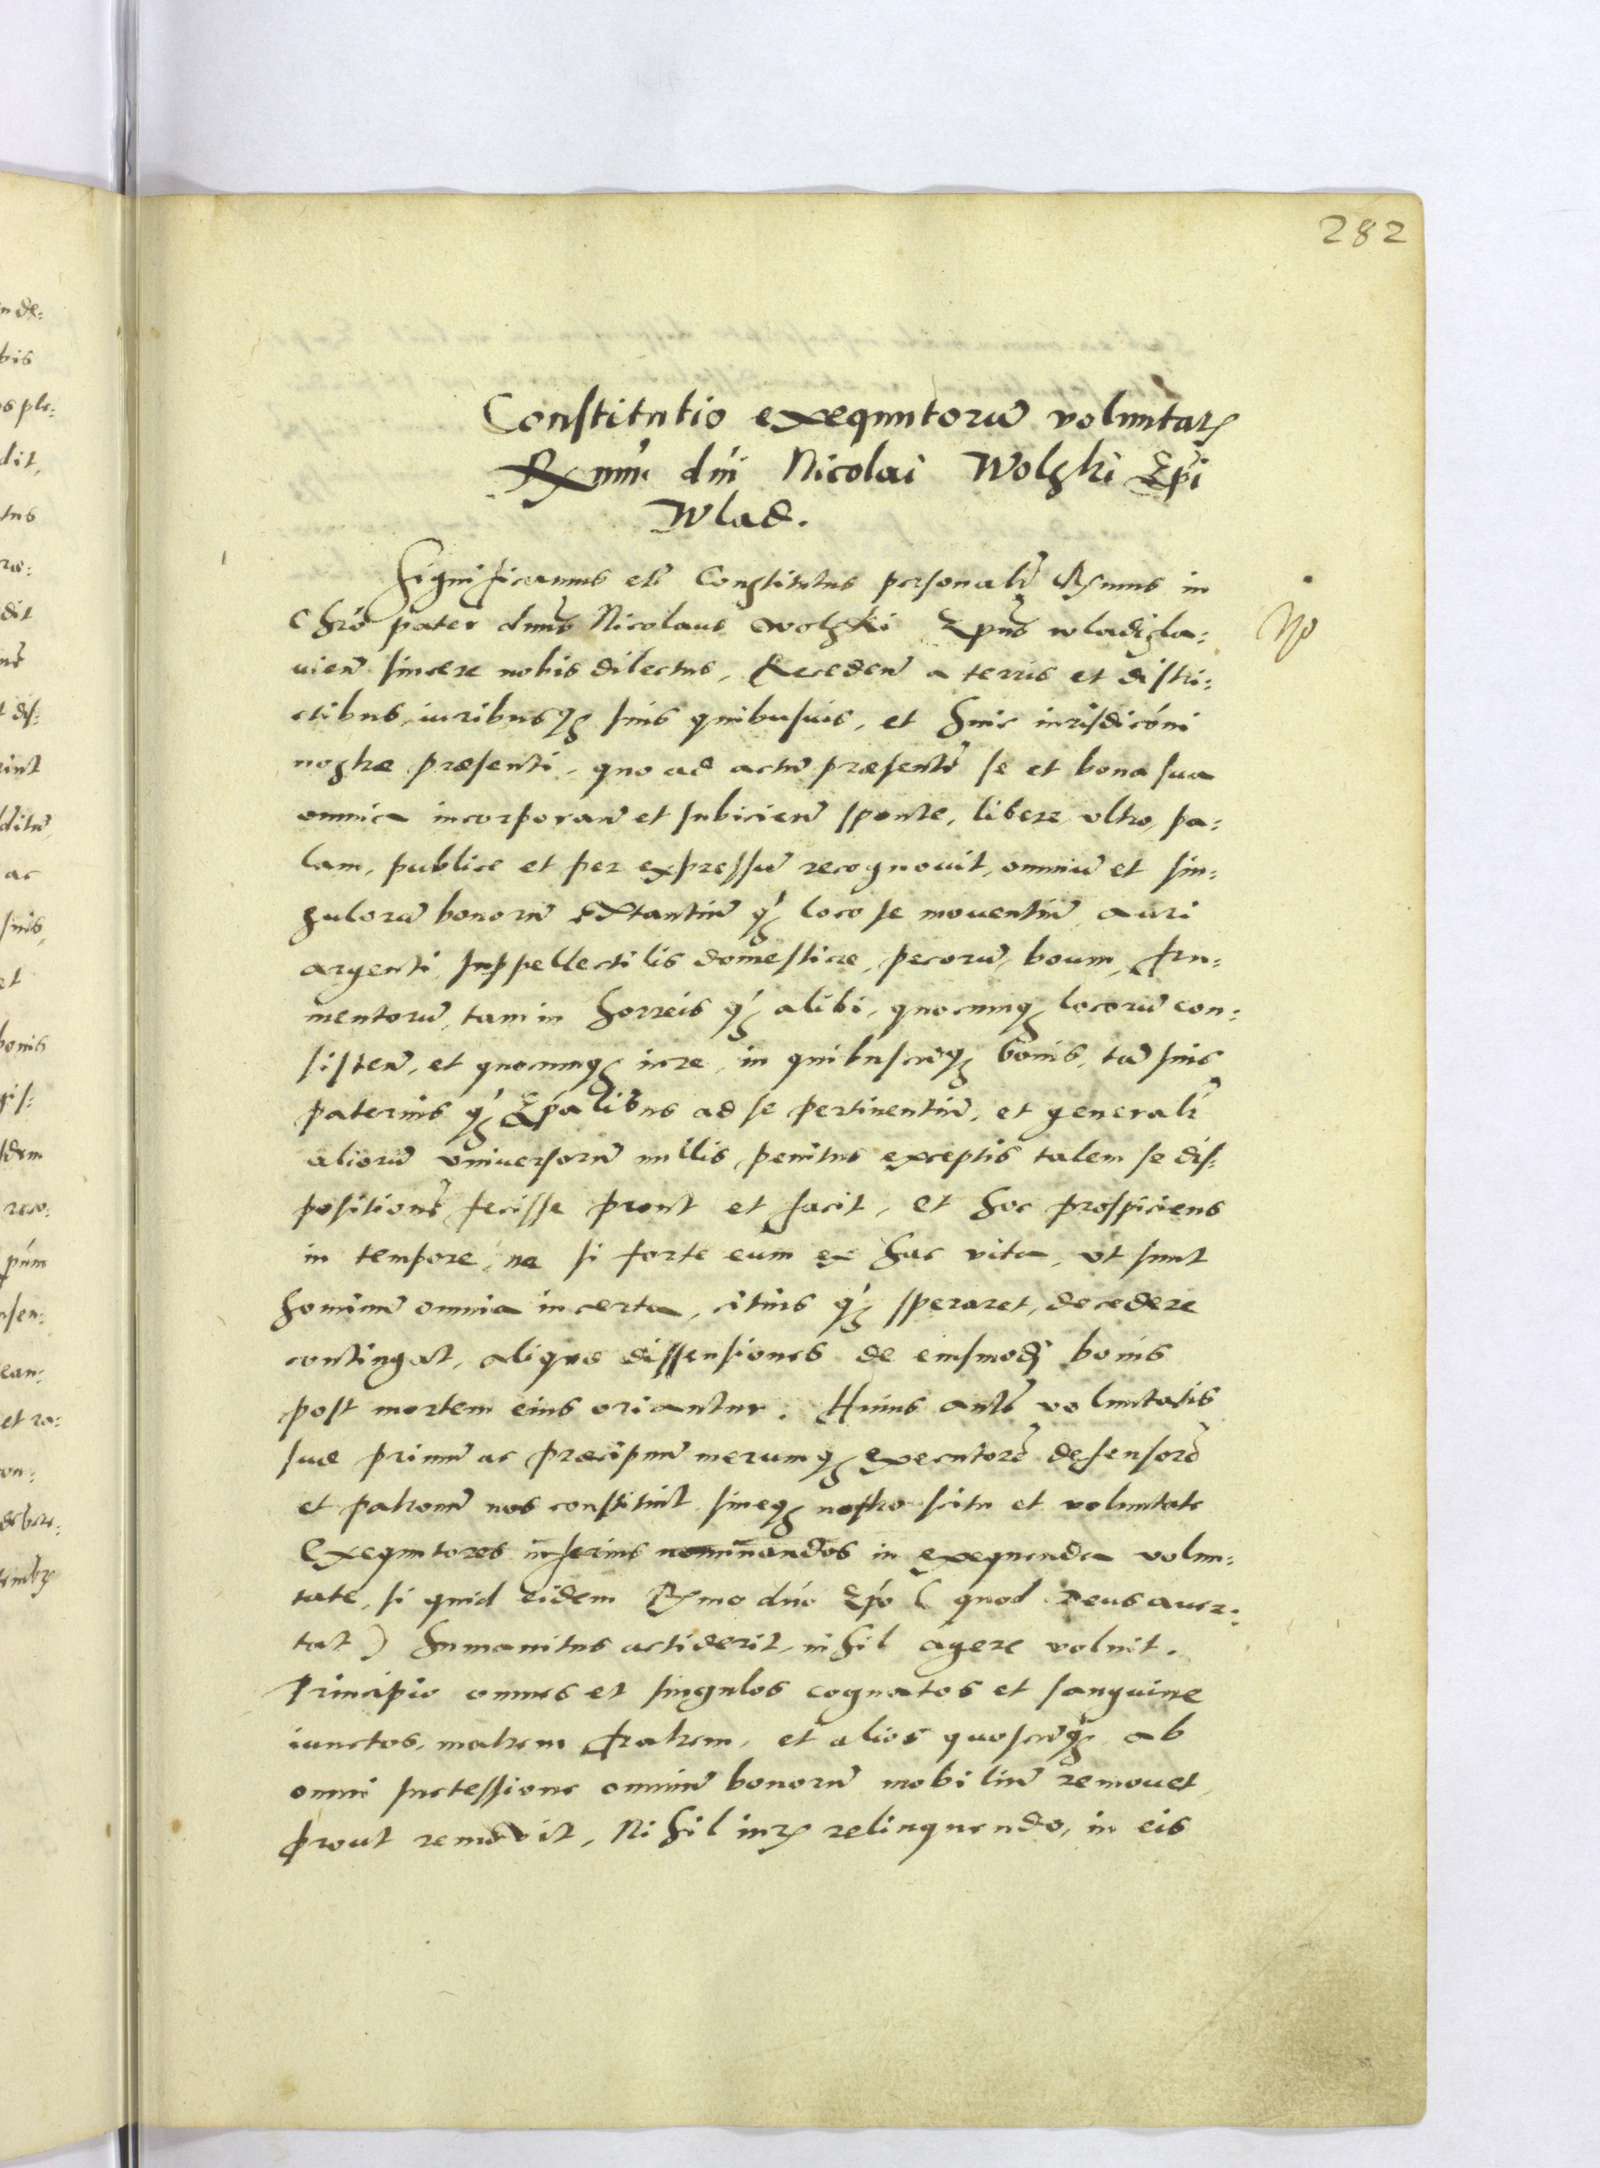 282
Constitutio exequutorū voluntatꝭ
Rxmi dńi Nicolai Wolski Epi
Wlad.
Significamus etc̄ Constitutus personalr̄ Rx̄mus in
Chrō pater dnus Nicolaus Wolski Epūs wladisla:
vień sincere nobis dilectus, Recedeń a terris et distri:
ctibus, iuribusqꝫ suis quibusuis, et huic iurisdicóni
nostræ præsenti, quo ad actū præsentē se et bona sua
omnia incorporań et subicień sponte, libere, vltro, pa:
lam, publice et per expressum recognouit, omniū et sin:
gulorū bonorū extantiū qꝫ loco se mouentiū, auri
argenti, suppellectilis domesticæ, pecorū, boum, fru:
mentorū, tam in horreis qꝫ alibi, quocunqꝫ locorū con:
sisteń, et quocunqꝫ iure, in quibuscūqꝫ bonis, tā suis
paternis qꝫ Epalibus ad se pertinentiū, et generalr̄
aliorū vniuersorū nullis penitus exceptis talem se dis:
positionē fecisse prout et facit, et hoc prospiciens
in tempore, ne si forte eum ex hac vita, vt sunt
hominū omnia incerta, citius qꝫ speraret, decedere
contingat, aliquæ dissensiones de eiusmodi bonis
post mortem eius oriantur. Huius autē voluntatis
suæ primū ac præcipuū merumqꝫ executorē defensorē
et patronū nos constituit, sineqꝫ nostro scitu et voluntate
Exequutores inferius nominandos in exequenda volun:
tate, si quid eidem Rx̄mo dńo Epó (quod Deus auer:
tat) humanitus acciderit, nihil agere voluit.
Principio omnes et singulos cognatos et sanguine
iunctos, matrem fratrem, et alios quoscūqꝫ ab
omni successione omniū bonorū mobiliū remouet,
prout removit, Nihil iurꝭ relinquendo, in eis